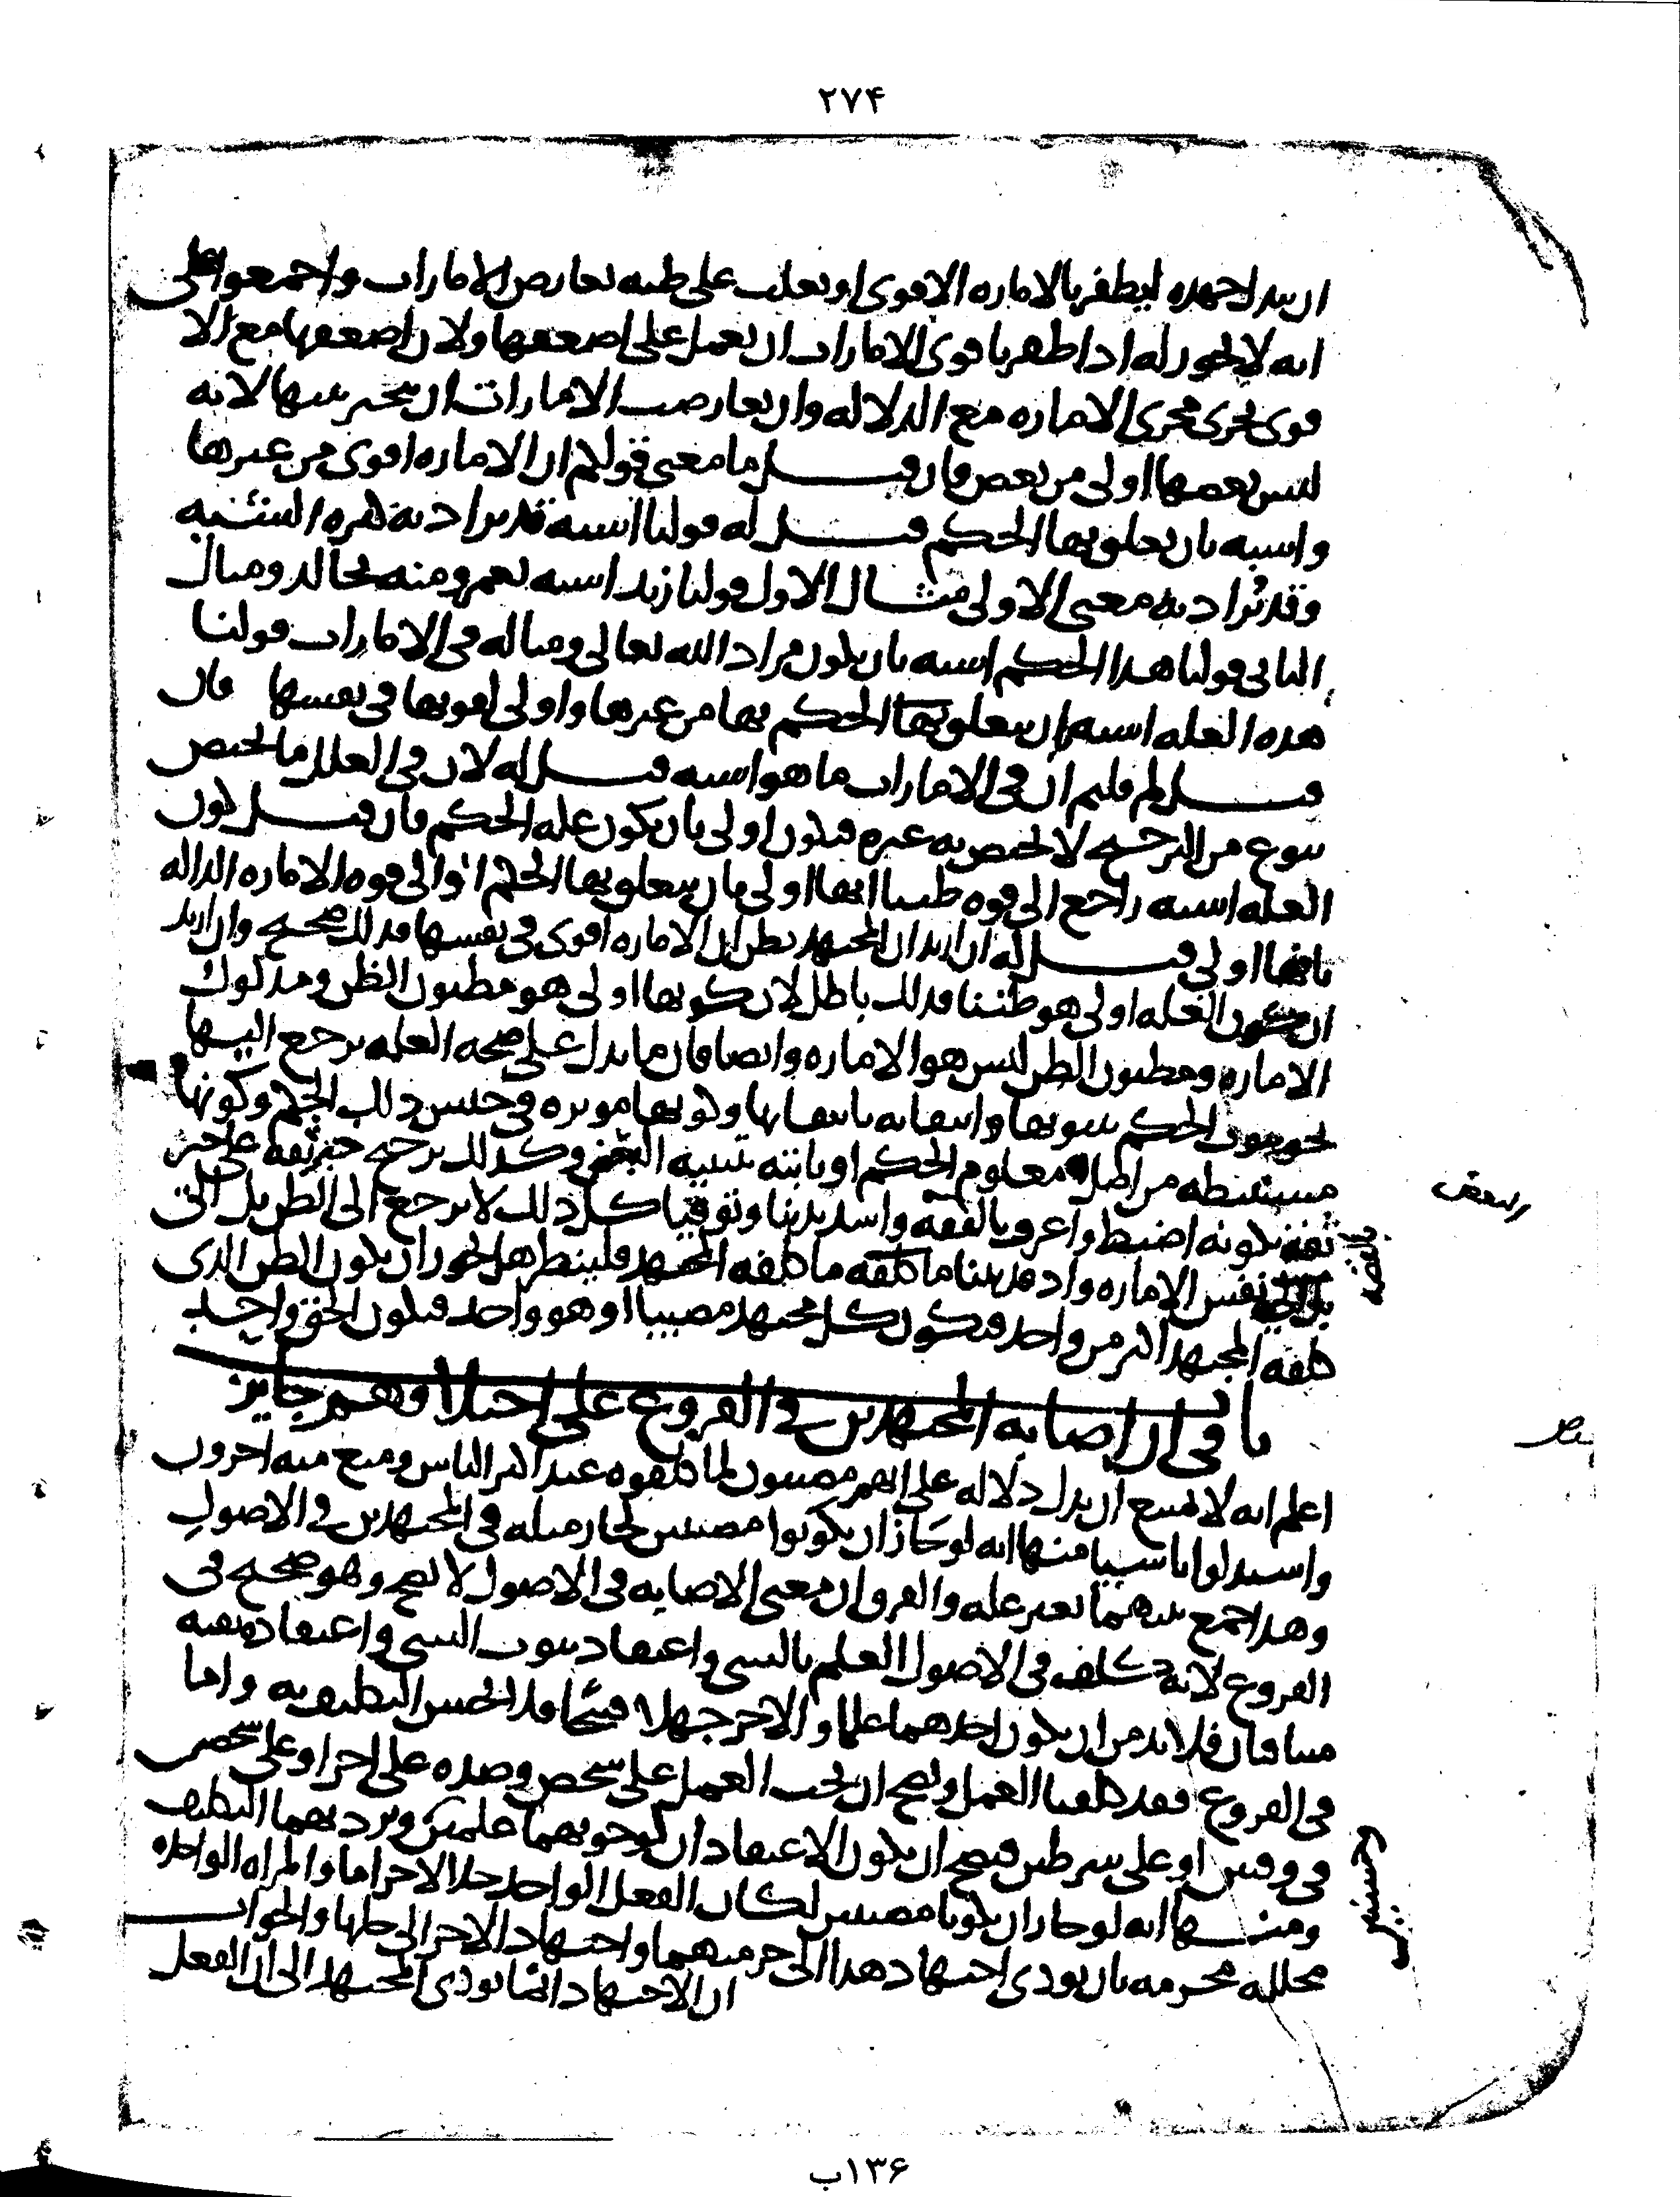 ٢٧۴
ان يبذل جهده ليظفر بالاماره الاقوى او يغلب على ظنه تعارض الامارات واجمعوا على
انه لا يجوز له اذا ظفر باقوى الامارات ان يعمل على اضعفها ولان اضعفها مع الا
قوى يجرى مجرى الاماره مع الدلاله وان تعارضت الامارات ان يتخير بينها لانه
ليس بعضها اولى من بعض فان قيل ما معنى قولكم ان الاماره اقوى من غيرها
واشبه بان يعلق بها الحكم قيل له قولنا اشبه قد يراد به كثره الشبه
وقد يراد به معنى الاولى مثال الاول قولنا زيد اشبه بعمرو منه بخالد ومثال
الثانى قولنا هذا الحكم اشبه بان يكون مراد الله تعالى ومثاله فى الامارات قولنا
هذه العله اشبه ان يتعلق بها الحكم بها من غيرها واولى لقوتها فى نفسها فان
قيل لم قلتم ان فى الامارات ما هو اشبه قيل له لان فى العلل ما يختص
بنوع من الترجيح لا يختص به غيره فيكون اولى بان يكون عله الحكم فان قيل كون
العله اشبه راجع الى قوه ظننا انها اولى بان يتعلق بها الحكم او الى قوه الاماره الداله
بانها اولى قيل له ان اريد ان المجتهد يظن ان الاماره اقوى فى نفسها فذلك صحيح وان اريد
ان كون العله اولى هو ظننا فذلك باطل لان كونها اولى هو مظنون الظن ومدلول
الاماره ومظنون الظن ليس هو الاماره وايضا فان ما يدل على صحه العله يرجع اليها
نحو ثبوت الحكم بثبوتها وانتفائه بانتفائها وكونها موثره فى جنس ذلك الحكم وكونها
مستنبطه من اصل معلوم الحكم او بانه تنبيه النص وكذلك ترجيح خبر ثقه على خبر
ثقه بكونه اضبط واعرف بالفقه واشد تدينا وتوقيا كل ذلك لا يرجع الى الظن بل الى
نفس الاماره واذ قد بينا ما كلفه المجتهد فلينظر هل يجوز ان يكون الظن الذى
كلفه المجتهد اكثر من واحد فيكون كل مجتهد مصيبا او هو واحد فيكون الحق واحد
باب فى ان اصابه المجتهدين فى الفروع على اختلافهم جايز
اعلم انه لا يمتنع ان يدل دلاله على انهم مصيبون لما كلفوه عند اكثر الناس ومنع منه اخرون
واستدلوا باشيا منها انه لو جاز ان يكونوا مصيبين لجاز مثله فى المجتهدين فى الاصول
وهذا جمع بينهما بغير عله والفرق ان معنى الاصابه فى الاصول لا يصح وهو صحيح فى
الفروع لانه كلف فى الاصول العلم بالشى واعتقاد ثبوت الشى واعتقاد نفيه
متنافيان فلا بد من ان يكون احدهما علما والاخر جهلا قبيحا فلا يحسن التكليف به واما
فى الفروع فقد كلفنا العمل ويصح ان يجب العمل على شخص وضده على اخر او على شخص
فى وقتين او على شرطين فيصح ان يكون الاعتقادان لوجوبهما علمين ويرد بهما التكليف
ومنها انه لو جاز ان يكونا مصيبين لكان الفعل الواحد حلالا حراما والمراه الواحده
محلله محرمه بان يودى اجتهاد هذا الى حرمتهما واجتهاد الاخر الى حلها والجواب
ان الاجتهاد انما يودى المجتهد الى ان الفعل
١٣۶ب